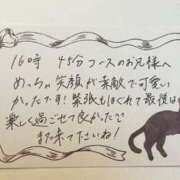 16時 45分コースのお兄様へ
めっちゃ笑顔が素敵で可愛い
かったです！緊張もほぐれて最後は
楽しく過ごせて良かったで
また来てたいね！